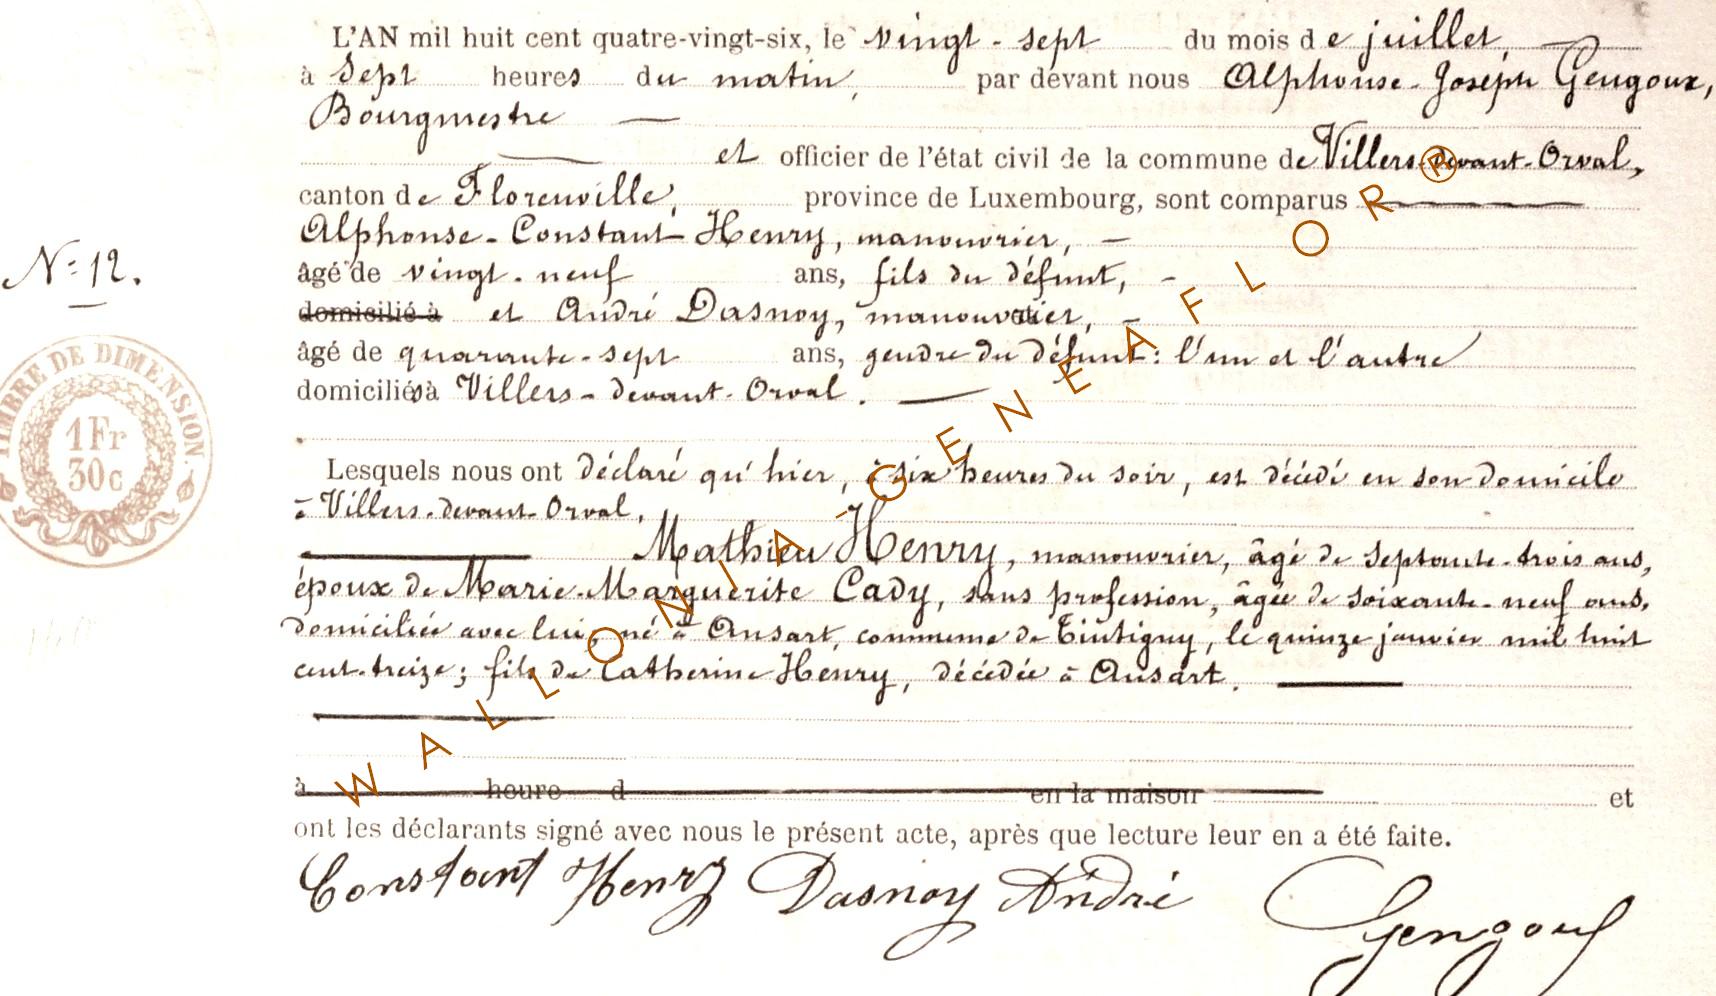 L'AN mil huit cent quatre-vingt-six, le vingt-sept du mois de juillet,
à sept heures du matin, par devant nous Alphonse-Joseph Gengoux,
Bourgmestre
et officier de l'état civil de la commune de Villers-devant-Orval,
canton de Florenville, province de Luxembourg, sont comparus
Alphonse-Constant Henry, manouvrier,
âgé de vingt-neuf ans, fils du défunt,
N° 12.
domicilié à et André Dasnoy, manouvrier,
âgé de quarante-sept ans, gendre du défunt: l'un et l'autre
domiciliés à Villers-devant-Orval.
TIMBRE DE DIMENSION.
1Fr
30c
Lesquels nous ont déclaré qu'hier, à six heures du soir, est décédé en son domicile
à Villers-devant-Orval,
Mathieu Henry, manouvrier, âgé de septante-trois ans,
époux de Marie-Marguerite Cady, sans profession, âgée de soixante-neuf ans,
domiciliée avec lui, né à Ansart, commune de Tintigny, le quinze janvier mil huit
cent-treize; fils de Catherine Henry, décédée à Ansart.
à heure d en la maison et
ont les déclarants signé avec nous le présent acte, après que lecture leur en a été faite.
Constant Henry Dasnoy André Gengoux
WALLONIA-GENEAFLOR®